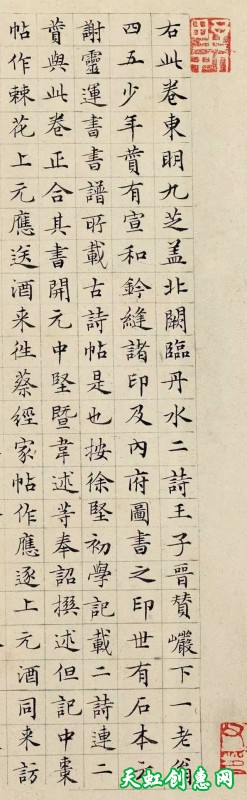 右此卷東明九芝盖北闕臨丹水二詩王子晉贊巖下一老翁
四五少年贊有宣和鈐縫諸印及內府圖書之印世有石本云
謝靈運書書譜所載古詩帖是也按徐堅初學記載二詩連二
贊與此卷正合其書開元中堅暨韋述等奉詔撰述但記中棗
帖作棘花上元應送酒来徃蔡經家帖作應逐上元酒同来訪
天虹创意网